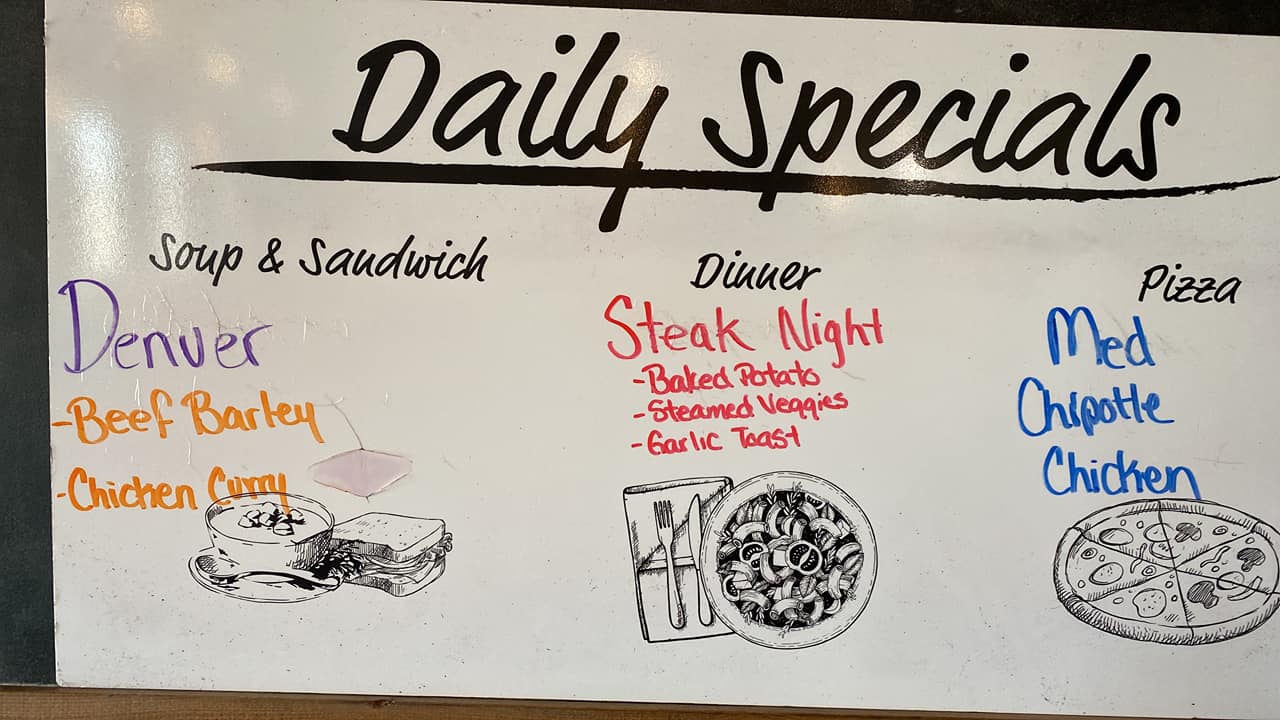 Daily Specials
Soup & Sandwich
Denver
-Beef Barley
-Chicken Curry
Dinner
Steak Night
-Baked Potato
-Steamed Veggies
-Garlic Toast
Pizza
Med
Chipotle
Chicken